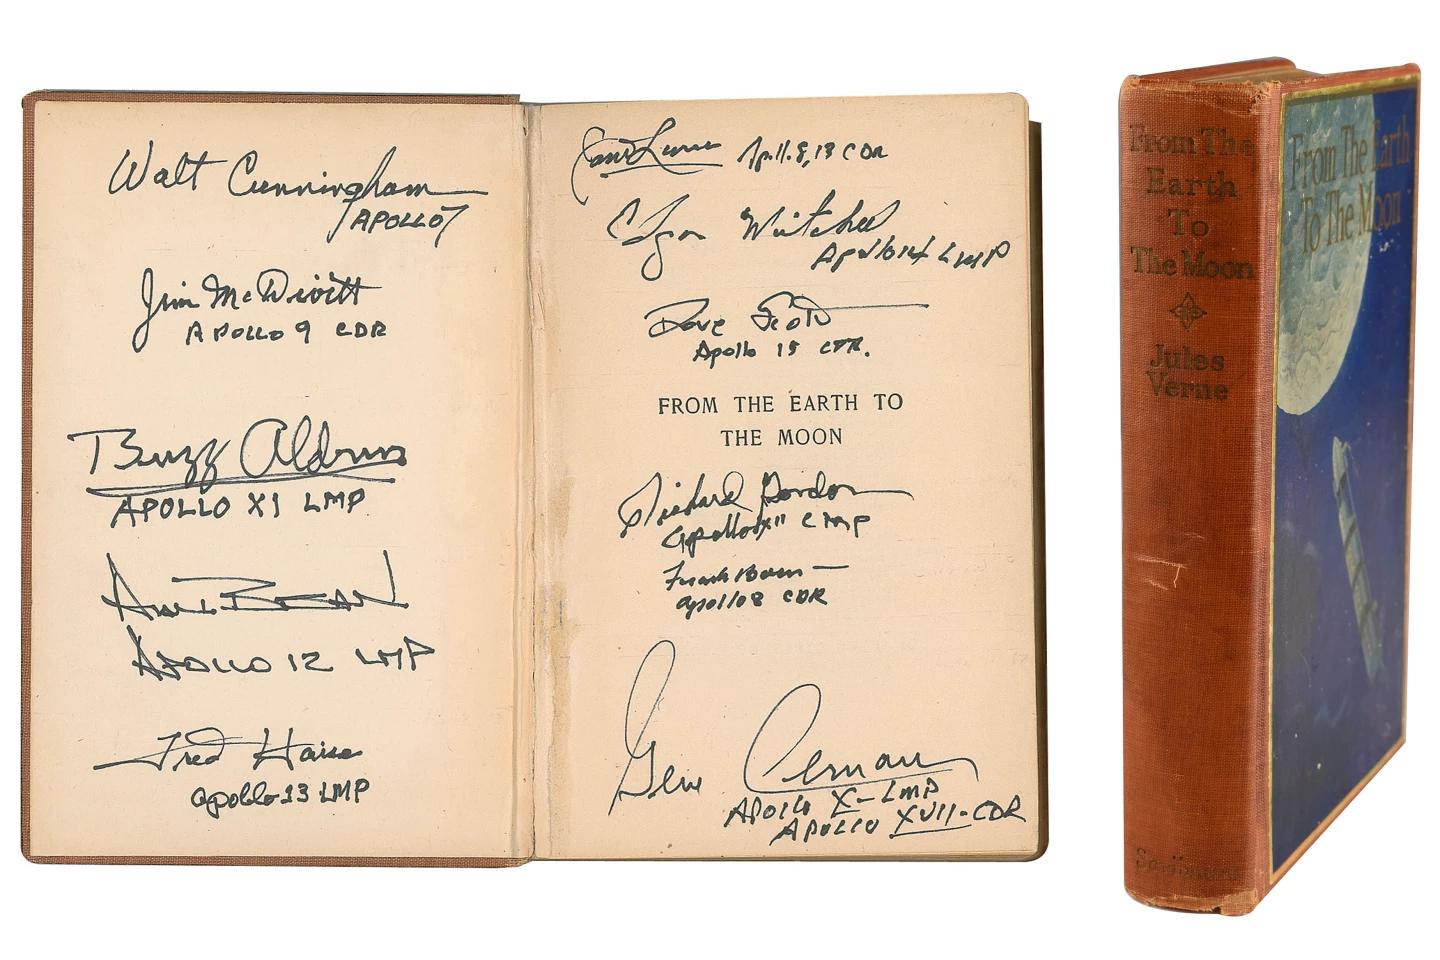 Walt Cunningham
APOLLO 7
Jim McDivitt
APOLLO 9 CDR
Buzz Aldrin
APOLLO XI LMP
Alan Bean
APOLLO 12 LMP
Fred Haise
Apollo 13 LMP
Jim Lovell Apollo 8, 13 CDR
Edgar Mitchell
Apollo 14 LMP
Dave Scott
Apollo 15 CDR.
FROM THE EARTH TO
THE MOON
Richard Gordon
Apollo XII CMP
Frank Borman
Apollo 8 CDR
Gene Cernan
APOLLO X-LMP
APOLLO XVII-CDR
From The
Earth
To
The Moon
Jules
Verne
Scribners
From The Earth
To The Moon